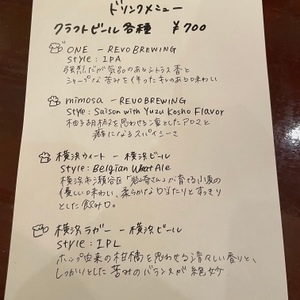 ドリンクメニュー
クラフトビール各種 ¥700
ONE - REVO BREWING
Style : IPA
強烈だが気品のあるシトラス香と
シャープな苦みを伴ったキレのある味わい
mimosa - REVO BREWING
Style : Saison with Yuzu Kosho Flavor
柚子胡椒を思わせる凛としたアロマと
癖になるスパイシーさ
横浜ウィート - 横浜ビール
Style : Belgian Wheat Ale
横浜市瀬谷区「岩崎さん」が育てる小麦の
優しい味わい、柔らかな口当たりとすっきり
とした飲み口。
横浜ラガー - 横浜ビール
Style : IPL
ホップ由来の柑橘を思わせる清々しい香りと、
しっかりとした苦みのバランスが絶妙